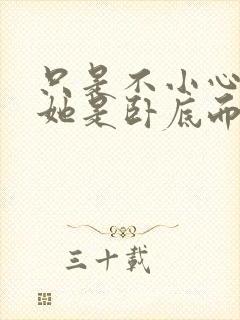 只是不小心
她是卧底而
三十載